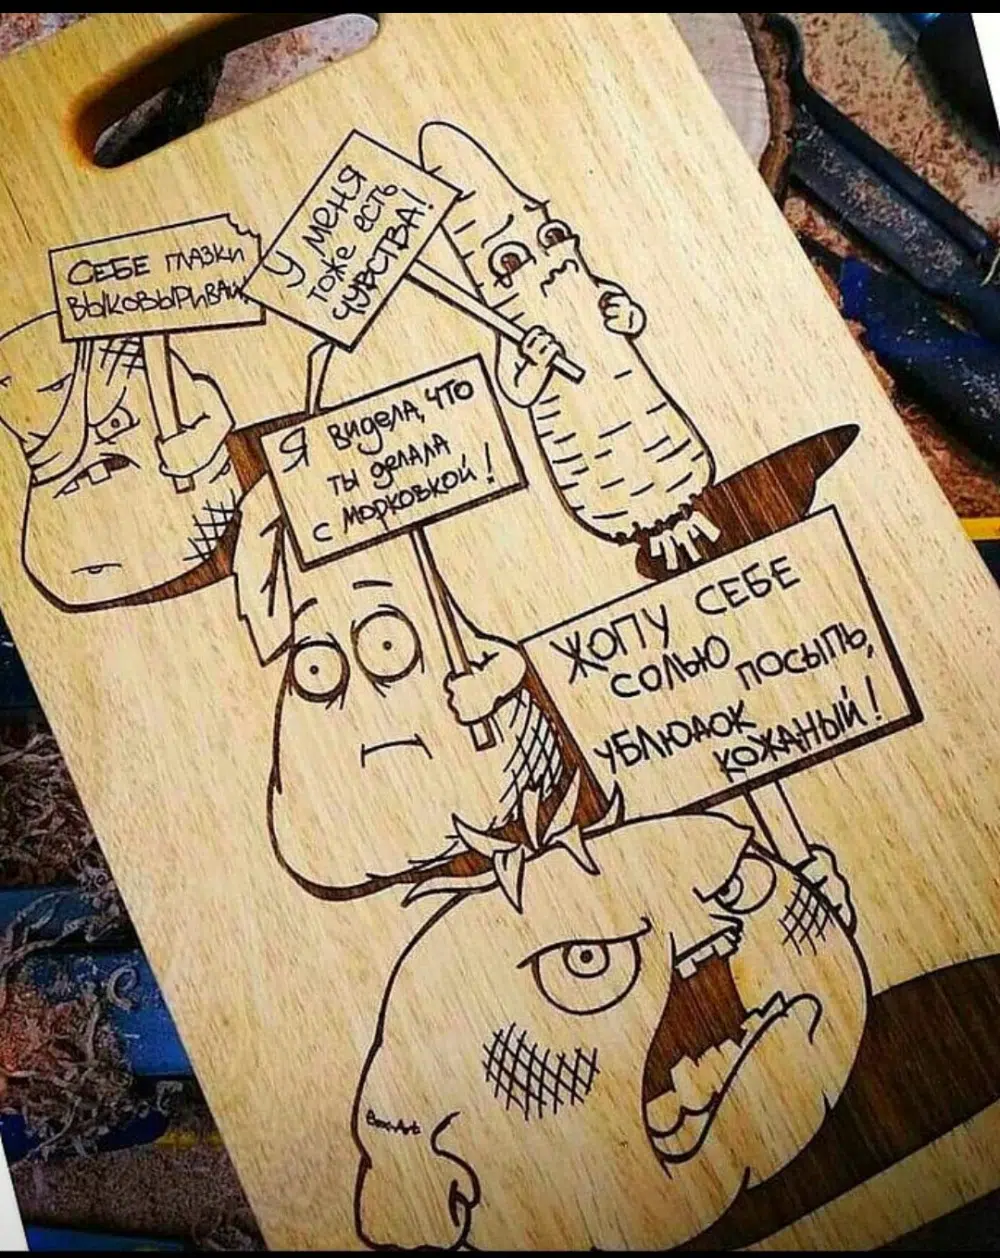 СЕБЕ ГЛАЗКИ
ВЫКОВЫРИВАЙ!
У МЕНЯ
ТОЖЕ ЕСТЬ
ЧУВСТВА!
Я ВИДЕЛА, ЧТО
ТЫ ДЕЛАЛА
С МОРКОВКОЙ!
ЖОПУ СЕБЕ
СОЛЬЮ ПОСЫПЬ,
УБЛЮДОК
КОЖАНЫЙ!
Box-Art